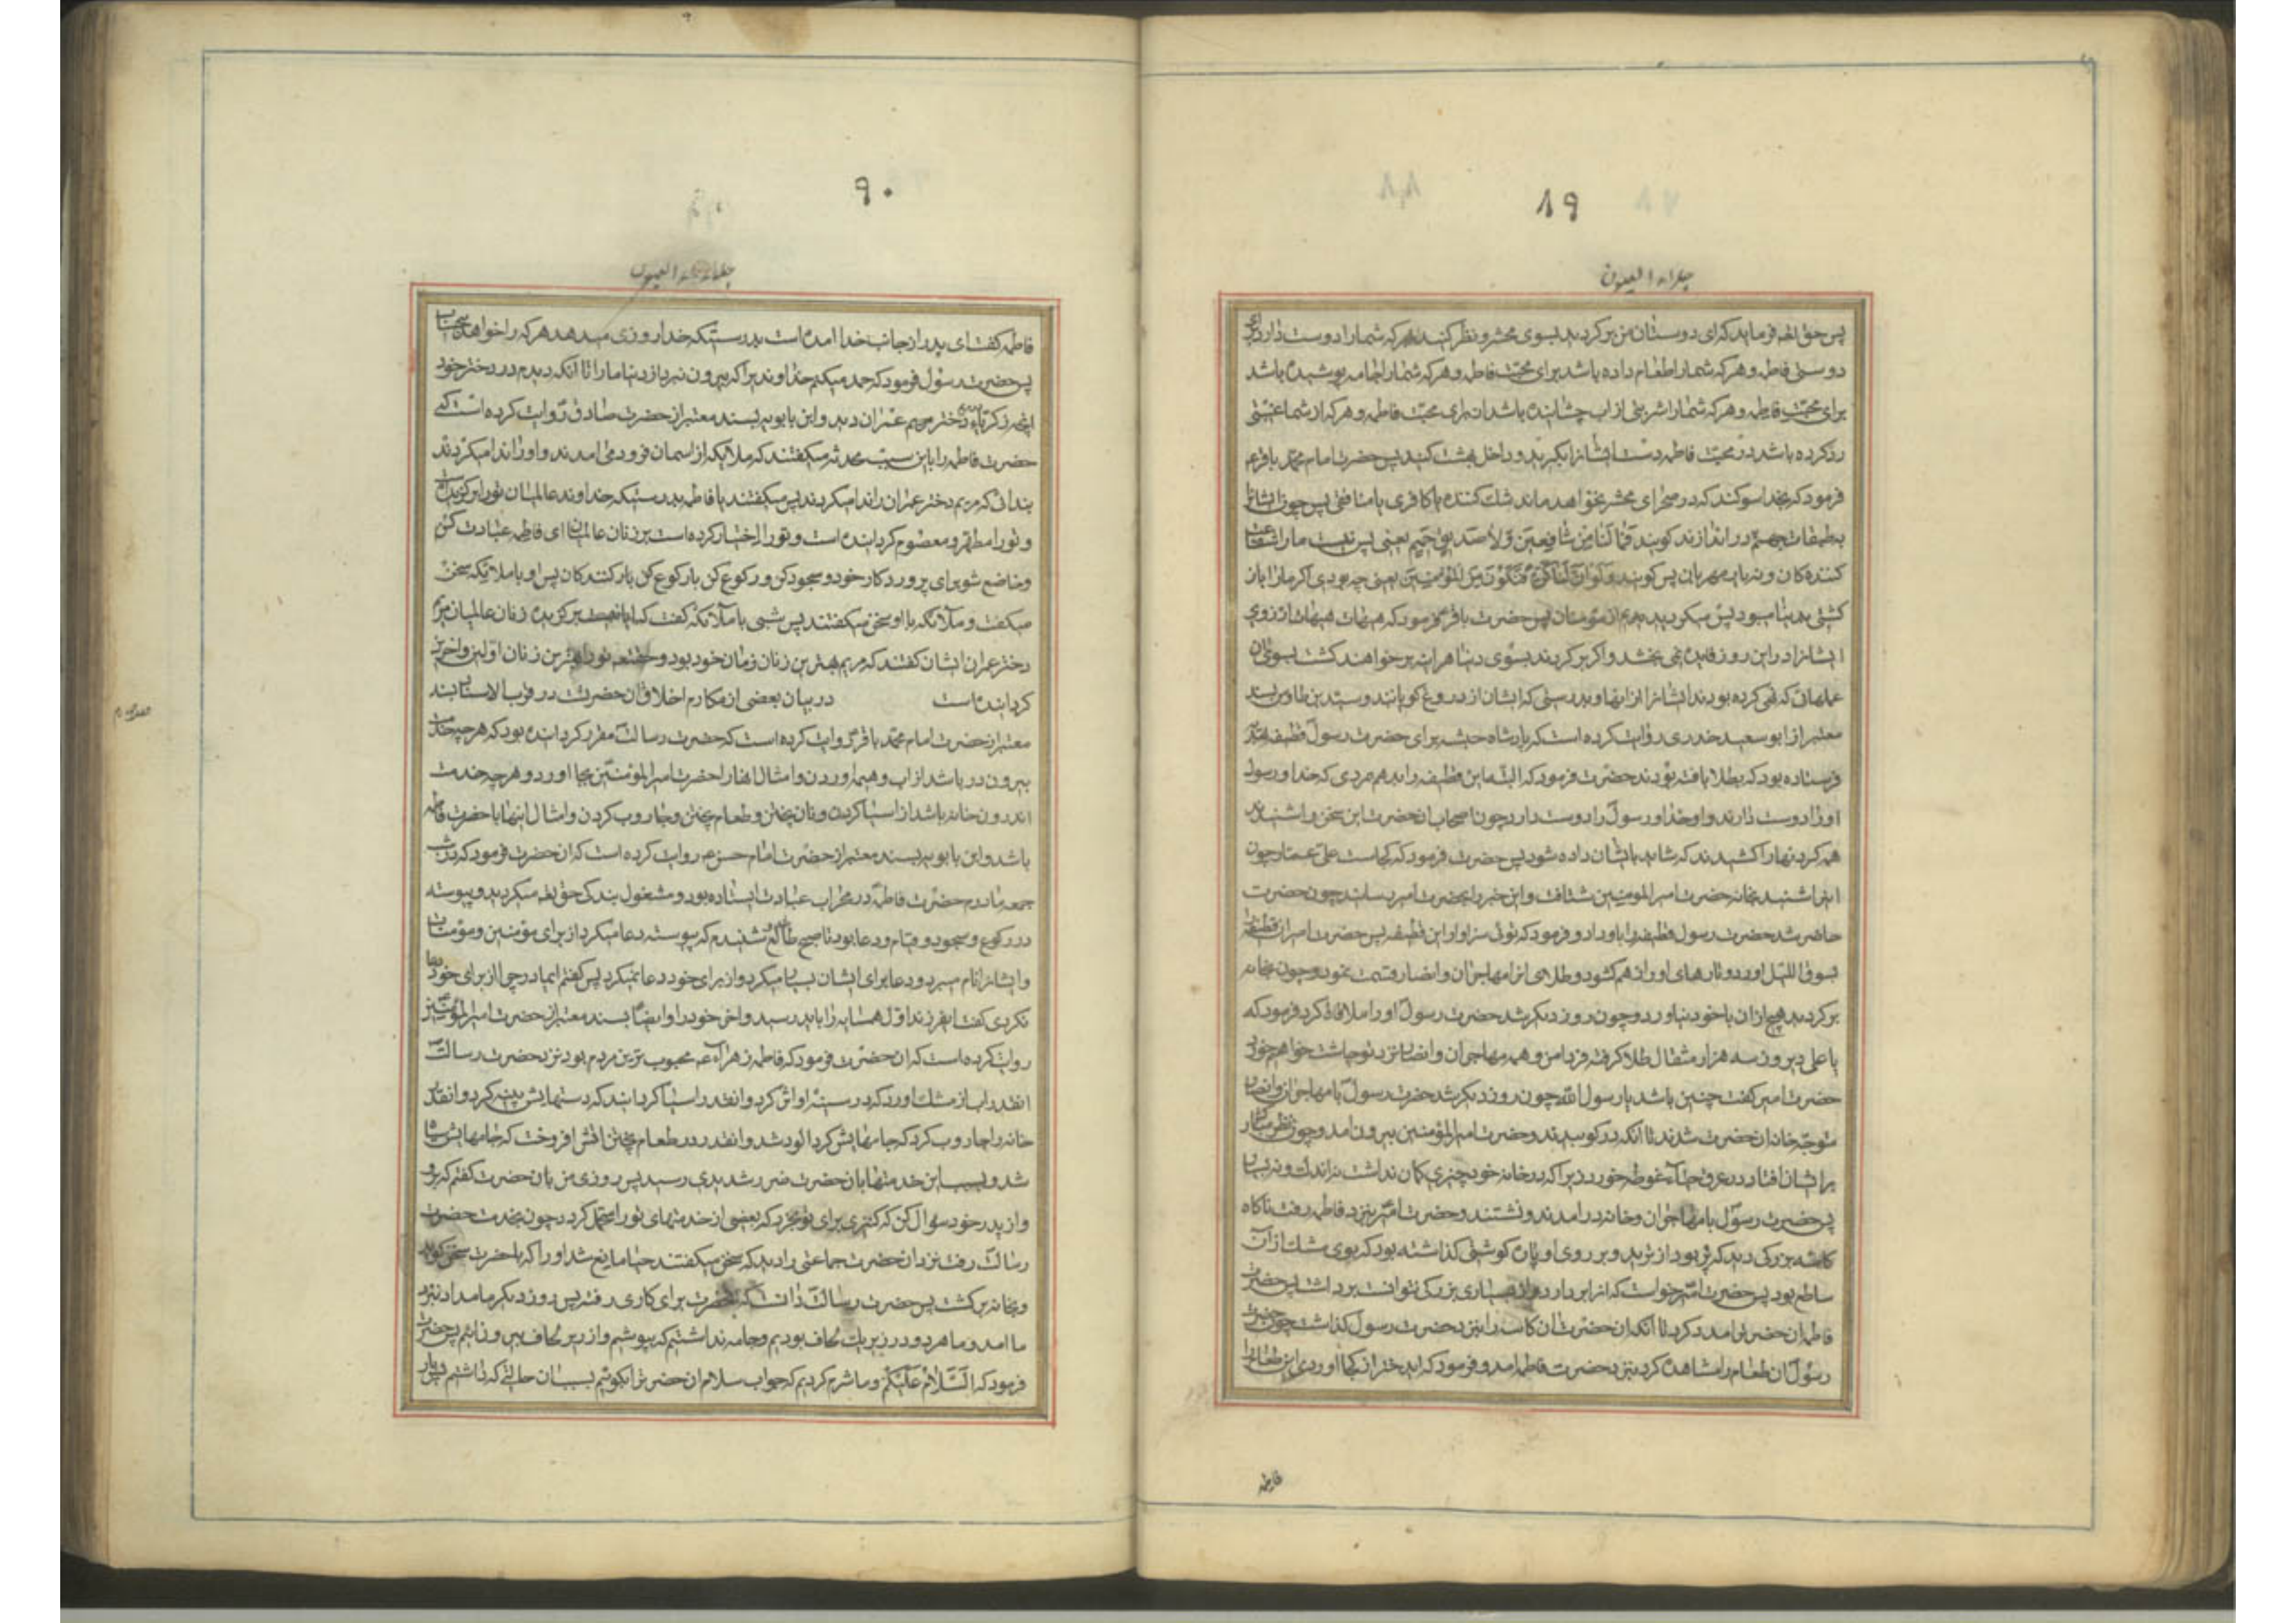 ۸۹
جلاء العیون
پس حق تعالی فرماید که ای دوستان من برگردید بسوی محشر و نظر کنید هر که شما را دوست دارد برای
دوستی فاطمه و هر که شما را طعام داده باشد برای محبت فاطمه و هر که شما را جامه پوشیده باشد
برای محبت فاطمه و هر که شما را شربتی از آب چشانیده باشد از برای محبت فاطمه و هر که از شما غیبتی
رد کرده باشد در محبت فاطمه دست ایشانرا بگیرید و داخل بهشت کنید پس حضرت امام محمد باقر ع
فرمود که بخدا سوگند که در صحرای محشر نخواهد ماند مگر شک کننده یا کافری یا منافقی پس چون ایشانرا
بطبقات جهنم در اندازند گویند فما لنا من شافعین ولا صدیق حمیم یعنی پس نیست ما را شفاعت
کننده گان و نه یار مهربان پس گویند فلو ان لنا کرة فنکون من المؤمنین یعنی چه بودی اگر ما را باز
گشتی بدنیا میبود پس میگردیدیم از مؤمنان پس حضرت باقر فرمود که هیهات هیهات آرزوی
ایشانرا در این روز فایده نمی بخشد و اگر برگردند بسوی دنیا هر اینه بر خواهند گشت بسوی آن
عملهائی که نهی کرده بودند ایشانرا از آنها و بدرستی که ایشان از دروغ گویانند و سید بن طاوس بسند
معتبر از ابو سعید خدری روایت کرده است که پادشاه حبشه برای حضرت رسول قطیفه
فرستاده بود که بطلا بافته بودند حضرت فرمود که البته این قطیفه را بدهم بمردی که خدا و رسول
او را دوست دارند و او خدا و رسول را دوست دارد چون اصحاب آنحضرت این سخن را شنیدند
همه گردنها را کشیدند که شاید بایشان داده شود پس حضرت فرمود که کجاست علی عمار چون
اینرا شنید بخانه حضرت امیر المومنین شتافت و این خبر را بحضرت امیر رسانید چون حضرت
حاضر شد حضرت رسول قطیفه را باو داد و فرمود که توئی سزاوار این قطیفه پس حضرت امیر آن قطیفه
بسوق اللیل آورد و تارهای او را از هم گشود و طلای انرا مهاجران و انصار قسمت نمود و چون بخانه
برگردید هیچ از آن با خود نیاورد و چون روز دیگر شد حضرت رسول او را ملاقات کرد فرمود که
یا علی دیروز سه هزار مثقال طلا گرفته فردا من و همه مهاجران و انصار نزد تو چاشت خواهیم خورد
حضرت امیر گفت چنین باشد یا رسول الله چون روز دیگر شد حضرت رسول با مهاجران و انصار
متوجه خانه آنحضرت شدند تا آنکه در کوبیدند و حضرت امیر المؤمنین بیرون آمد و چون نظر مبارک
بر ایشان افتاد در عرق حیا غوطه خورد زیرا که در خانه خود چیزی گمان نداشت نه اندک و نه بسیار
پس حضرت رسول با مهاجران و خانه در آمدند و نشستند و حضرت امیر بنزد فاطمه رفت ناگاه
کاسه بزرگی دید که پر بود از ترید و بر روی او پاره گوشتی گذاشته بود که بوی مشک از آن
ساطع بود پس حضرت امیر خواست که انرا بردارد از بسیاری بزرگی نتوانست برداشت پس حضرت
فاطمه آن حضرت را مدد کرد تا آنکه آن حضرت آن کاسه را بنزد حضرت رسول گذاشت چون حضرت
رسول آن طعام را مشاهده کرد بنزد حضرت فاطمه آمد و فرمود که ای دختر از کجا آوردی این طعام را
فاطمه
۹۰
جلاء العیون
فاطمه گفت ای پدر از جانب خدا آمده است بدرستیکه خدا روزی میدهد هر که را خواهد بیحساب
پس حضرت رسول فرمود که حمد میکنم خداوندیرا که بیرون نبرد از دنیا ما را تا آنکه دیدم در دختر خود
انچه زکریا در دختر مریم عمران دید و ابن بابویه بسند معتبر از حضرت صادق روایت کرده است که
حضرت فاطمه را باین سبب محدثه میگفتند که ملایکه از اسمان فرود می امدند و او را ندا میکردند
ندائی که مریم دختر عمران را ندا میکردند پس میگفتند یا فاطمه بدرستیکه خداوند عالمیان تو را برگزیده
و تو را مطهر و معصوم گردانیده است و تو را اختیار کرده است بر زنان عالمیان ای فاطمه عبادت کن
و خاضع شو برای پروردگار خود و سجود کن و رکوع کن با رکوع کنندگان پس او با ملائکه سخن
میگفت و ملائکه با او سخن میگفتند پس شبی با ملائکه گفت که ایا نیست برگزیده زنان عالمیان مریم
دختر عمران ایشان گفتند که مریم بهترین زنان زمان خود بود و حقتعالی تو را بهترین زنان اولین و آخرین
گردانیده است در بیان بعضی از مکارم اخلاق آن حضرت در قرب الاسناد بسند
معتبر از حضرت امام محمد باقر روایت کرده است که حضرت رسالت مقرر گردانیده بود که هر چه خدمت
بیرون در باشد از آب و هیمه آوردن و امثال انها را حضرت امیر المؤمنین بجا آورد و هر چه خدمت
اندرون خانه باشد از اسیا کردن و نان پختن و طعام پختن و جاروب کردن و امثال اینها با حضرت فاطمه
باشد و ابن بابویه بسند معتبر از حضرت امام حسن ع روایت کرده است که ان حضرت فرمود که در شب
جمعه مادرم حضرت فاطمه در محراب عبادت ایستاده بود و مشغول بندگی حق تعالی میگردید و پیوسته
در رکوع و سجود و قیام و دعا بود تا صبح طالع شد شنیدم که پیوسته دعا میکرد از برای مؤمنین و مؤمنات
و ایشانرا نام میبرد و دعا برای ایشان بسیار میکرد و از برای خود دعا نمیکرد پس گفتم ایمادر چرا از برای خود دعا
نکردی گفت ایفرزند اول همسایه را باید رسید و آخر خود را و ایضا بسند معتبر از حضرت امیر المؤمنین
روایت کرده است که ان حضرت فرمود که فاطمه زهرا ع محبوب ترین مردم بود نزد حضرت رسالت
انقدر آب از مشک اورد که در سینه او اثر کرد و انقدر اسیا گردانید که دستهایش پینه کرد و انقدر
خانه را جاروب کرد که جامهایش گرد الود شد و انقدر در طعام پختن اتش افروخت که جامهایش سیاه
شد و بسبب این خدمتها بان حضرت ضرر شدیدی رسید پس روزی من بان حضرت گفتم که برو
و از پدر خود سؤال کن که کنیزی برای تو بخرد که بعضی از خدمتهای تو را متحمل گردد چون بخدمت حضرت
رسالت رفت نزد ان حضرت جماعتی را دید که سخن میگفتند حیا مانع شد او را که با حضرت سخن گوید
و بخانه برگشت پس حضرت رسالت دانست که برای کاری رفته پس روز دیگر بامداد نزد
ما آمد و ما هر دو در زیر یک لحاف بودیم و جامه نداشتیم که بپوشیم و از زیر لحاف بیرون آئیم پس حضرت
فرمود که السلام علیکم و ما شرم کردیم که جواب سلام ان حضرت را بگوئیم بسبب ان حالتی که داشتیم دیگر بار